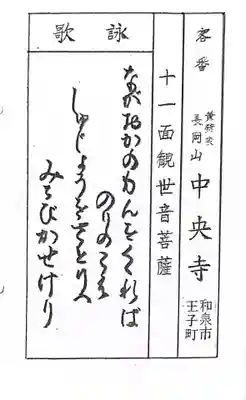 客番
黄檗宗
長岡山
中央寺
和泉市
王子町
十一面観世音菩薩
詠歌
ながおかの もんをくぐれば
のりのこゑ
しゅじょうをさとりへ
みちびかせけり